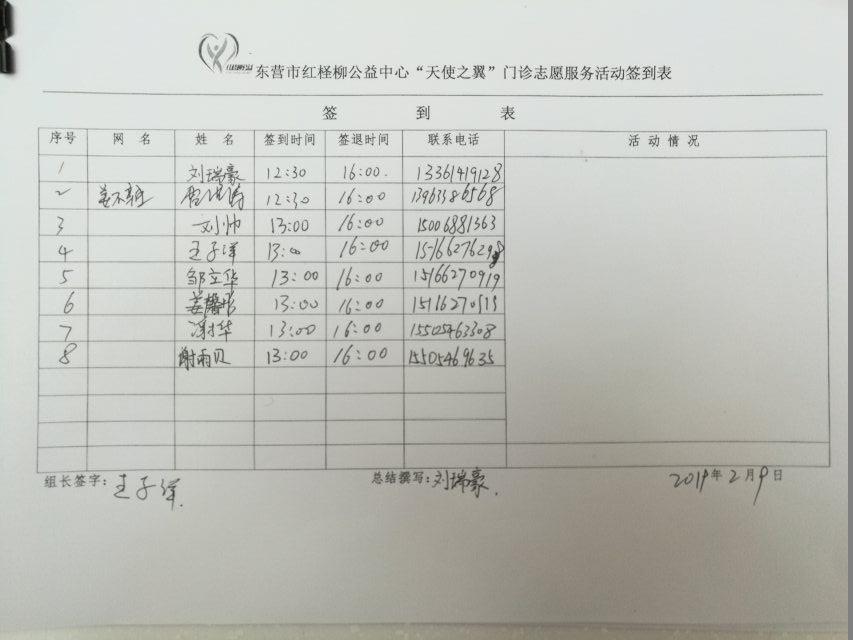 东营市红柽柳公益中心“天使之翼”门诊志愿服务活动签到表
签 到 表
序号 网 名 姓 名 签到时间 签退时间 联系电话 活动情况
1 刘瑞豪 12:30 16:00. 13361419128
2 12:30 16:00 13963386568
3 刘帅 13:00 16:00 15006881363
4 王子洋 13:00 16:00
5 邹立华 13:00 16:00 15166270919
6 13:00 16:00
7 13:00 16:00 15505463308
8 谢雨贝 13:00 16:00 15505469635
组长签字: 王子洋. 总结撰写: 刘瑞豪. 2019年2月9日